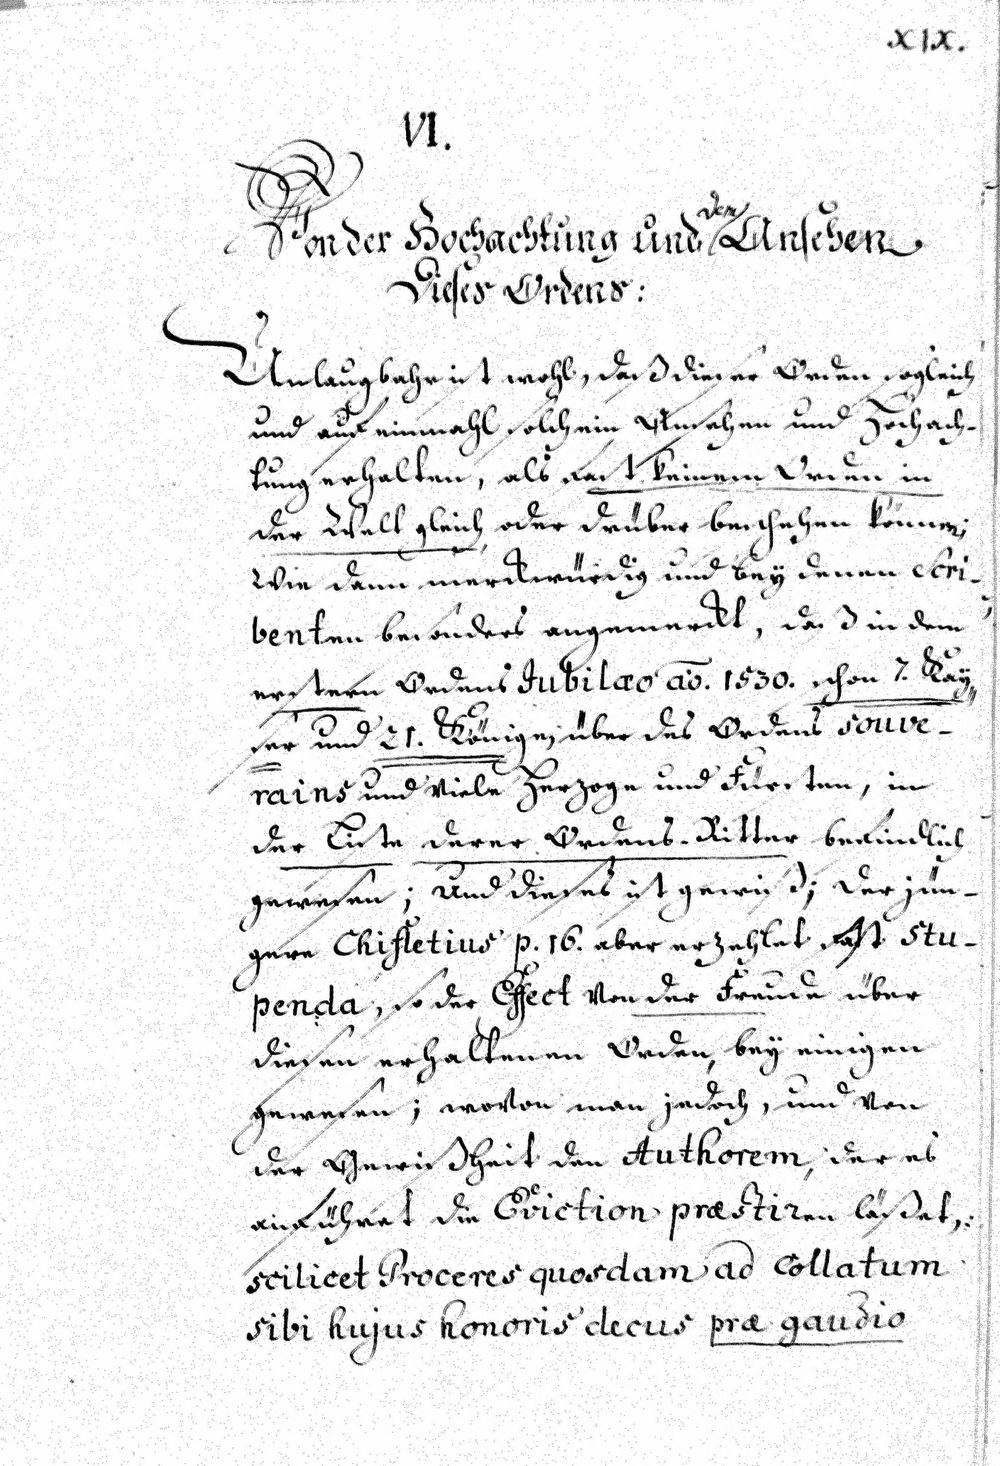 XIX.
VI.
Von der Hochachtung und dem Ansehen
Dieses Ordens:
Unlaugbahr ist wohl, daß dieser Orden sogleich
und auf einmahl solch ein Ansehen und Hochach-
tung erhalten, als fast keinem Orden in
der Welt gleich oder drüber beschehen können;
Wie dann merckwürdig und bey denen Scri-
benten besonders angemerckt, daß in dem
erstern Ordens Jubilæo ao. 1530. schon 7. Kay-
ser und 21. Könige, über des Ordens souve-
rains und viele Herzoge und Fürsten, in
der Liste derer Ordens-Ritter befindlich
gewesen; Und dieses ist gewiß; der jün-
gere Chifletius p. 16. aber erzehlet fast stu-
penda, so der Effect von der Freude über
diesen erhaltenen Orden, bey einigen
gewesen; wovon man jedoch, und von
der Gewißheit den Authorem, der es
anführet die Eviction præstiren läßet,:
scilicet Proceres quosdam ad Collatum
sibi hujus honoris decus præ gaudio